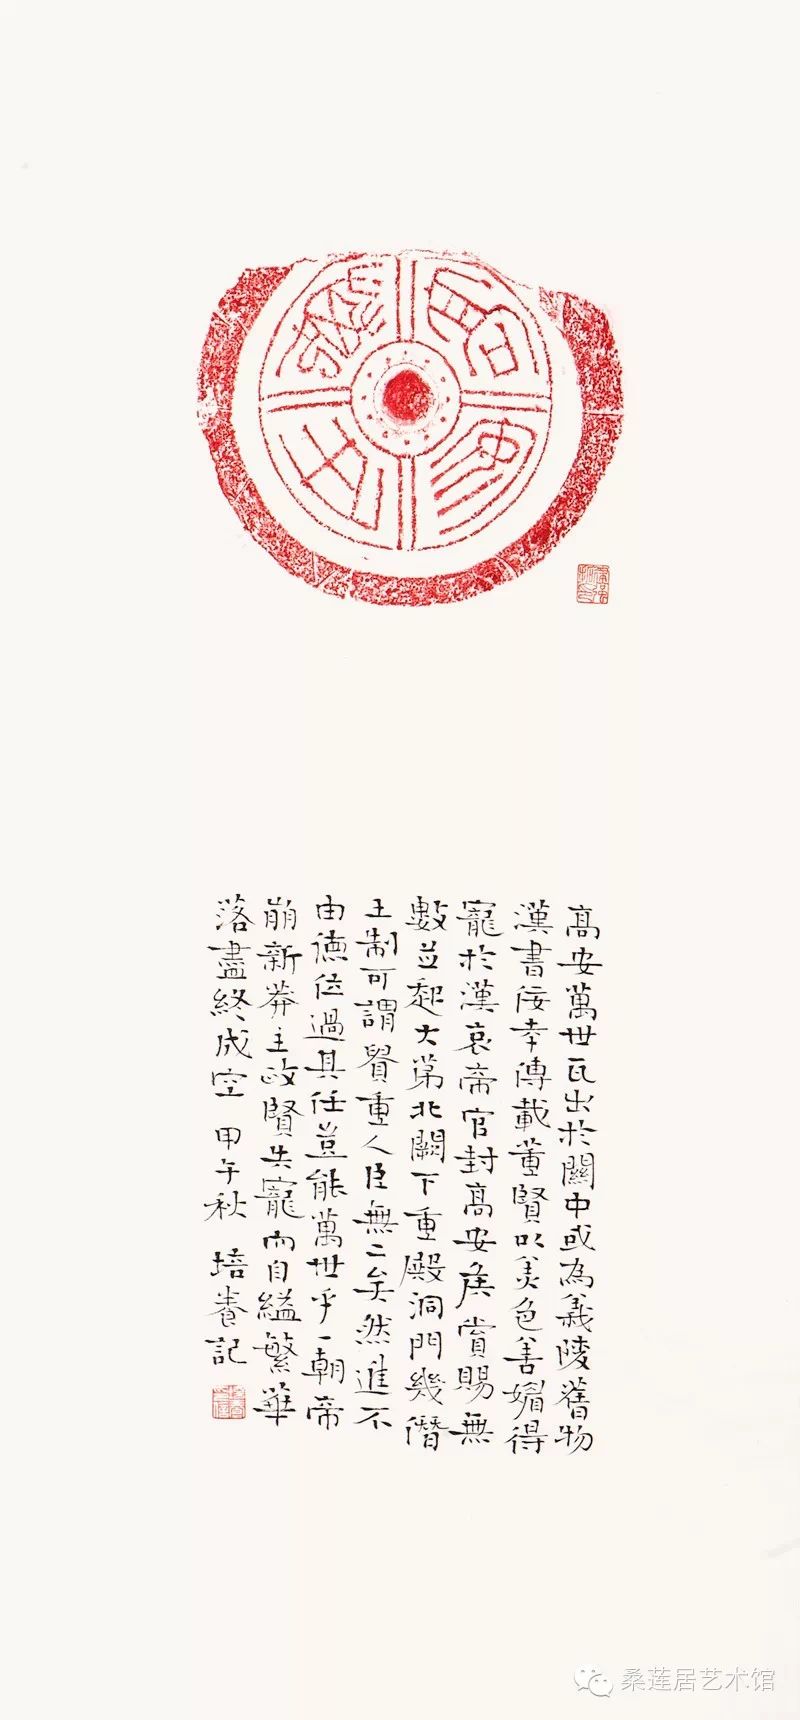 高安萬世
高安萬世瓦出於關中或為義陵舊物
漢書佞幸傳載董賢以美色善媚得
寵於漢哀帝官封高安侯賞賜無
數並起大第北闕下重殿洞門幾僭
王制可謂貴重人臣無二矣然進不
由德位過其任豈能萬世乎一朝帝
崩新莽主政賢失寵而自縊繁華
落盡終成空 甲午秋 培養記
桑莲居艺术馆